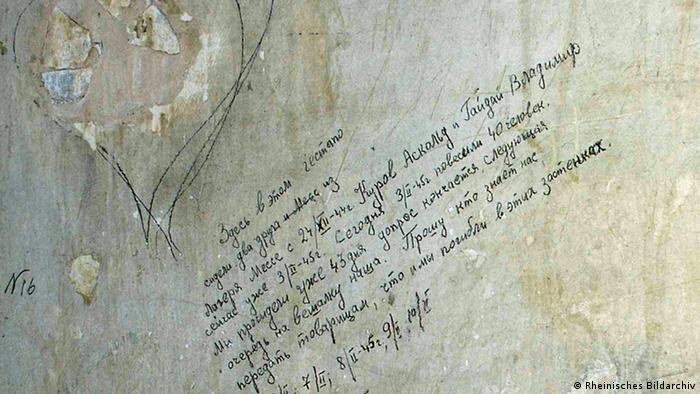 Здесь в этом гестапо
сидели два друга и Месс из
лагеря Мессе с 24/XII-44г Куров Аскольд и Гайдай Владимир
сейчас уже 3/II-45г. Сегодня 3/II-45г повесили 40 человек.
Мы просидели уже 43 дня допрос кончается, следующая
очередь на вешалку наша. Прошу кто знает нас,
передать товарищам, что и мы погибли в этих застенках.
7/II, 8/II-45г, 9/II, 10/II
N16
© Rheinisches Bildarchiv